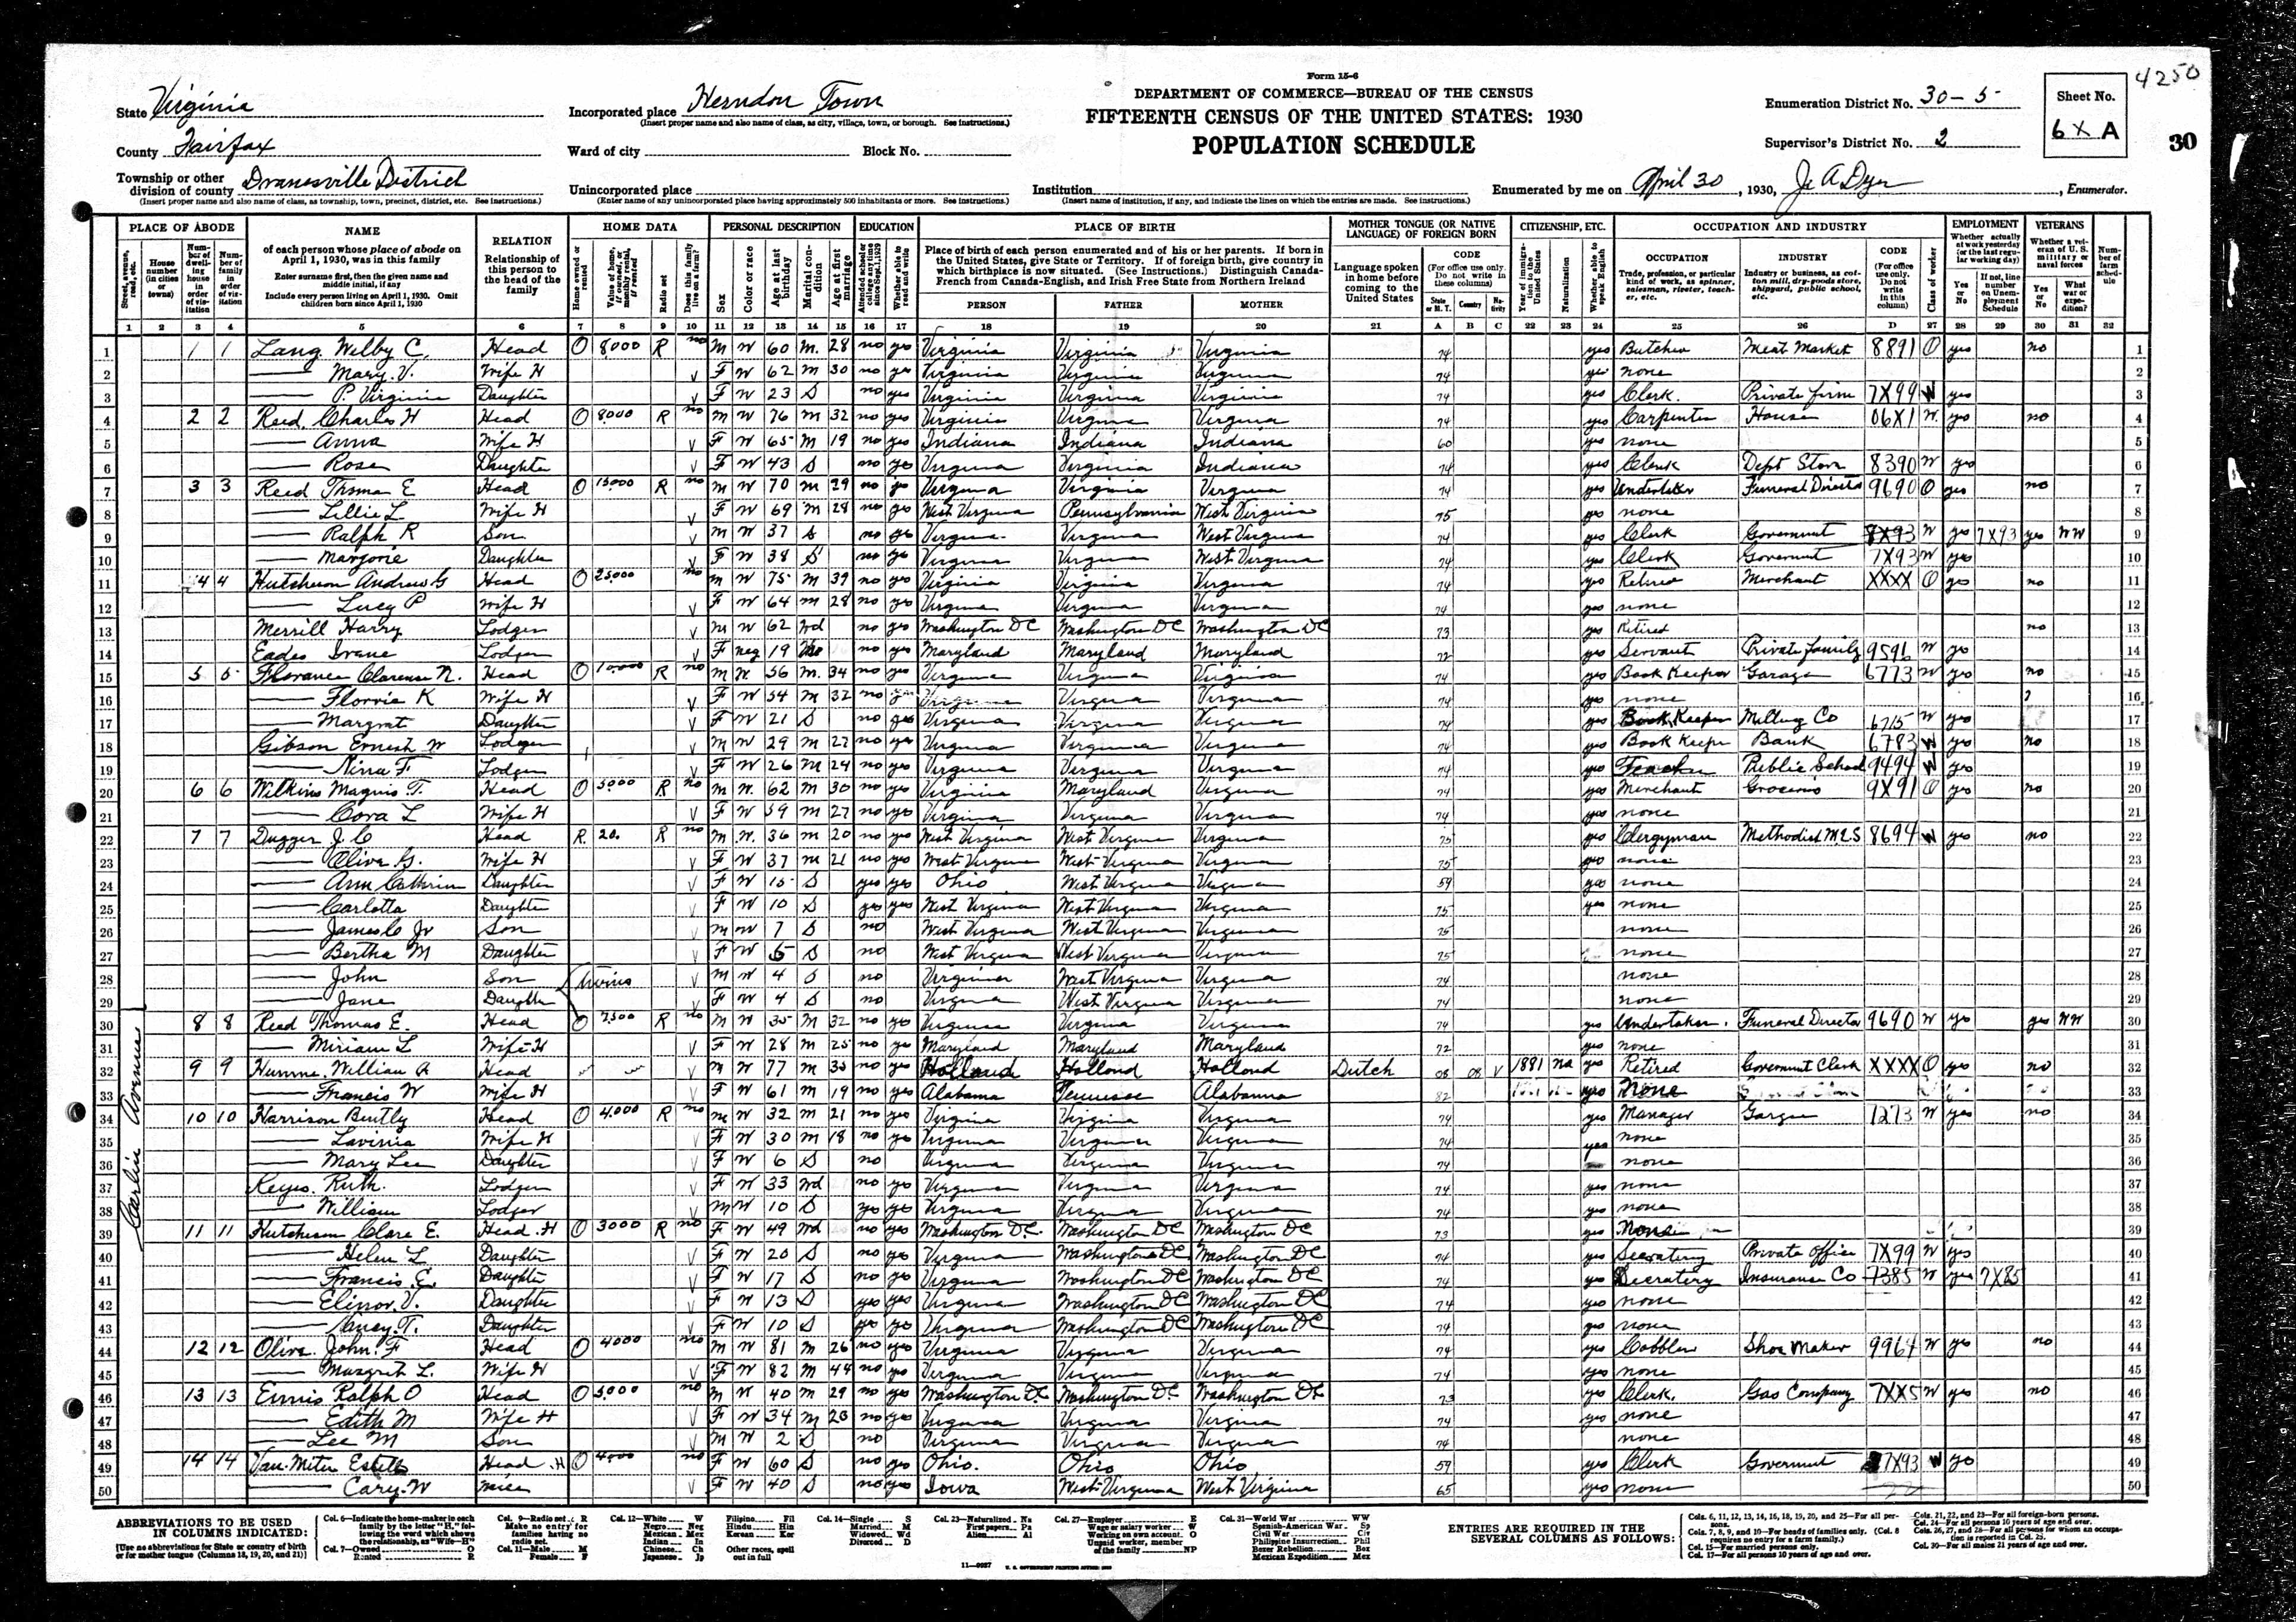 4250
Form 15-6
DEPARTMENT OF COMMERCE—BUREAU OF THE CENSUS
FIFTEENTH CENSUS OF THE UNITED STATES: 1930
POPULATION SCHEDULE
State Virginia
County Fairfax
Township or other division of county Dranesville District
(Insert proper name and also name of class, as township, town, precinct, district, etc. See instructions.)
Incorporated place Herndon Town
(Insert proper name and also name of class, as city, village, town, or borough. See instructions.)
Ward of city Block No.
Unincorporated place
(Enter name of any unincorporated place having approximately 500 inhabitants or more. See instructions.)
Institution
(Insert name of institution, if any, and indicate the lines on which the entries are made. See instructions.)
Enumeration District No. 30-5
Supervisor's District No. 2
Sheet No. 6X A
30
Enumerated by me on April 30, 1930, J. A Dyer, Enumerator.
PLACE OF ABODE NAME RELATION HOME DATA PERSONAL DESCRIPTION EDUCATION PLACE OF BIRTH MOTHER TONGUE (OR NATIVE LANGUAGE) OF FOREIGN BORN CITIZENSHIP, ETC. OCCUPATION AND INDUSTRY EMPLOYMENT VETERANS
1 2 3 4 5 6 7 8 9 10 11 12 13 14 15 16 17 18 19 20 21 A B C 22 23 24 25 26 D 27 28 29 30 31 32
Carlin Avenue
1 1 1 Lang Wilby C. Head O 8000 R no M W 60 M. 28 no yes Virginia Virginia Virginia 74 yes Butcher Meat Market 8891 O yes no 1
2 — Mary. V. Wife H F W 62 M 30 no yes Virginia Virginia Virginia 74 yes none 2
3 — P. Virginia Daughter F W 23 S no yes Virginia Virginia Virginia 74 yes Clerk. Private firm 7X99 W yes 3
4 2 2 Reed, Charles H Head O 8000 R no M W 76 M 32 no yes Virginia Virginia Virginia 74 yes Carpenter House 06X1 W yes no 4
5 — Anna Wife H F W 65 M 19 no yes Indiana Indiana Indiana 60 yes none 5
6 — Rose Daughter F W 43 S no yes Virginia Virginia Indiana 74 yes Clerk Dept Store 8390 W yes 6
7 3 3 Reed Thomas E Head O 15000 R no M W 70 M 29 no yes Virginia Virginia Virginia 74 yes Undertaker Funeral Director 9690 O yes no 7
8 — Lillie L Wife H F W 69 M 28 no yes West Virginia Pennsylvania West Virginia 75 yes none 8
9 — Ralph R Son M W 37 S no yes Virginia Virginia West Virginia 74 yes Clerk Government 7X93 W yes 7X93 yes WW 9
10 — Marjorie Daughter F W 38 S no yes Virginia Virginia West Virginia 74 yes Clerk Government 7X93 W yes 10
11 4 4 Hutchison Andrew G Head O 25000 no M W 75 M 39 no yes Virginia Virginia Virginia 74 yes Retired Merchant XXXX O yes no 11
12 — Lucy P Wife H F W 64 M 28 no yes Virginia Virginia Virginia 74 yes none 12
13 Merrill Harry Lodger M W 62 Wd no yes Washington DC Washington DC Washington DC 73 yes Retired no 13
14 Eades Lodger F Neg 19 no yes Maryland Maryland Maryland 72 yes Servant Private family 9596 W yes 14
15 5 5 Florance Clarence N. Head O 10,000 R no M W. 56 M. 34 no yes Virginia Virginia Virginia 74 yes Book Keeper Garage 6773 W yes no 15
16 — K Wife H F W 54 M 32 no Virginia Virginia Virginia 74 yes none 16
17 — Margrat Daughter F W 21 S no yes Virginia Virginia Virginia 74 yes Book Keeper Milling Co 6715 W yes 17
18 Gibson Ernest W Lodger M W 29 M 27 no yes Virginia Virginia Virginia 74 yes Book Keeper Bank 6783 W yes no 18
19 — Nina F. Lodger F W 26 M 24 no yes Virginia Virginia Virginia 74 yes Teacher Public School 9494 W yes 19
20 6 6 Wilkins Magnis T. Head O 5000 R no M W. 62 M 30 no yes Virginia Maryland Virginia 74 yes Merchant Groceries 9X91 O yes no 20
21 — Cora L Wife H F W 59 M 27 no yes Virginia Virginia Virginia 74 yes none 21
22 7 7 Dugger J. C Head R. 20. R no M W. 36 M 20 no yes West Virginia West Virginia Virginia 75 yes Clergyman Methodist M.E.S 8694 W yes no 22
23 — Olive G. Wife H F W 37 M 21 no yes West Virginia West Virginia Virginia 75 yes none 23
24 — Ann Cathrin Daughter F W 15 S yes yes Ohio West Virginia Virginia 59 yes none 24
25 — Carlotta Daughter F W 10 S yes yes West Virginia West Virginia Virginia 75 yes none 25
26 — James C Jr Son M W 7 S no West Virginia West Virginia Virginia 75 none 26
27 — Bertha M Daughter F W 5 S no West Virginia West Virginia Virginia 75 none 27
28 — John Son Twins M W 4 S no Virginia West Virginia Virginia 74 none 28
29 — Jane Daughter F W 4 S no Virginia West Virginia Virginia 74 none 29
30 8 8 Reed Thomas E. Head O 7500 R no M W 35 M 32 no yes Virginia Virginia Virginia 74 yes Undertaker. Funeral Director 9690 W yes yes WW 30
31 — Miriam L Wife-H F W 28 M 25 no yes Maryland Maryland Maryland 72 yes none 31
32 9 9 Humme, William R Head M W 77 M 35 no yes Holland Holland Holland Dutch 08 08 V 1881 na yes Retired Government Clerk XXXX O yes no 32
33 — Francis W Wife H F W 61 M 19 no yes Alabama Tennessee Alabama 82 yes None 33
34 10 10 Harrison Bently Head O 4,000 R no M W 32 M 21 no yes Virginia Virginia Virginia 74 yes Manager 7273 W yes no 34
35 — Lavinia Wife H F W 30 M 18 no yes Virginia Virginia Virginia 74 yes none 35
36 — Mary Lee Daughter F W 6 S no Virginia Virginia Virginia 74 none 36
37 Keyes. Ruth. Lodger F W 33 Wd no yes Virginia Virginia Virginia 74 yes none 37
38 — William Lodger M W 10 S yes yes Virginia Virginia Virginia 74 yes none 38
39 11 11 Hutchison Clare E. Head. H O 3000 R no F W 49 Wd no yes Washington DC. Washington DC Washington DC 73 yes None 39
40 — Helen L Daughter F W 20 S no yes Virginia Washington DC Washington DC 74 yes Secratery Private office 7X99 W yes 40
41 — Francis E. Daughter F W 17 S no yes Virginia Washington DC Washington DC 74 yes Secratery Insurance Co 7385 W yes 7X85 41
42 — Elinor. V. Daughter F W 13 S yes yes Virginia Washington DC Washington DC 74 yes none 42
43 — Nancy. T. Daughter F W 10 S yes yes Virginia Washington DC Washington DC 74 yes none 43
44 12 12 Olive. John. F Head O 4000 no M W 81 M 26 no yes Virginia Virginia Virginia 74 yes Cobbler Shoe Maker 9964 W yes no 44
45 — Margrit L. Wife H F W 82 M 44 no yes Virginia Virginia Virginia 74 yes none 45
46 13 13 Ralph O Head O 5,000 no M W 40 M 29 no yes Washington DC Washington DC Washington DC 73 yes Clerk. Gas Company 7XX5 W yes no 46
47 — Edith M Wife H F W 34 M 23 no yes Virginia Virginia Virginia 74 yes none 47
48 — Lee M Son M W 2 S no Virginia Virginia Virginia 74 none 48
49 14 14 Van-Meter Estelle Head. H O 4000 no F W 60 S no yes Ohio. Ohio Ohio 59 yes Clerk Government 7X93 W yes 49
50 — Cary-W niece F W 40 S no yes Iowa West-Virginia West Virginia 65 yes none 50
ABBREVIATIONS TO BE USED IN COLUMNS INDICATED:
[Use no abbreviations for State or country of birth or for mother tongue (Columns 18, 19, 20, and 21)]
Col. 6—Indicate the home-maker in each family by the letter "H," following the word which shows the relationship, as "Wife—H"
Col. 7—Owned O Rented R
Col. 9—Radio set R Make no entry for families having no radio set.
Col. 11—Male M Female F
Col. 12—White W Negro Neg Mexican Mex Indian In Chinese Ch Japanese Jp Filipino Fil Hindu Hin Korean Kor Other races, spell out in full
Col. 14—Single S Married M Widowed Wd Divorced D
Col. 23—Naturalized Na First papers Pa Alien Al
Col. 27—Employer E Wage or salary worker W Working on own account O Unpaid worker, member of the family NP
Col. 31—World War WW Spanish-American War Sp Civil War Civ Philippine Insurrection Phil Boxer Rebellion Box Mexican Expedition Mex
ENTRIES ARE REQUIRED IN THE SEVERAL COLUMNS AS FOLLOWS:
Cols. 6, 11, 12, 13, 14, 16, 18, 19, 20, and 25—For all persons.
Cols. 7, 8, 9, and 10—For heads of families only. (Col. 8 requires no entry for a farm family.)
Col. 15—For married persons only.
Col. 17—For all persons 10 years of age and over.
Cols. 21, 22, and 23—For all foreign-born persons.
Col. 24—For all persons 10 years of age and over.
Cols. 26, 27, and 28—For all persons for whom an occupation is reported in Col. 25.
Col. 30—For all males 21 years of age and over.
11—9927